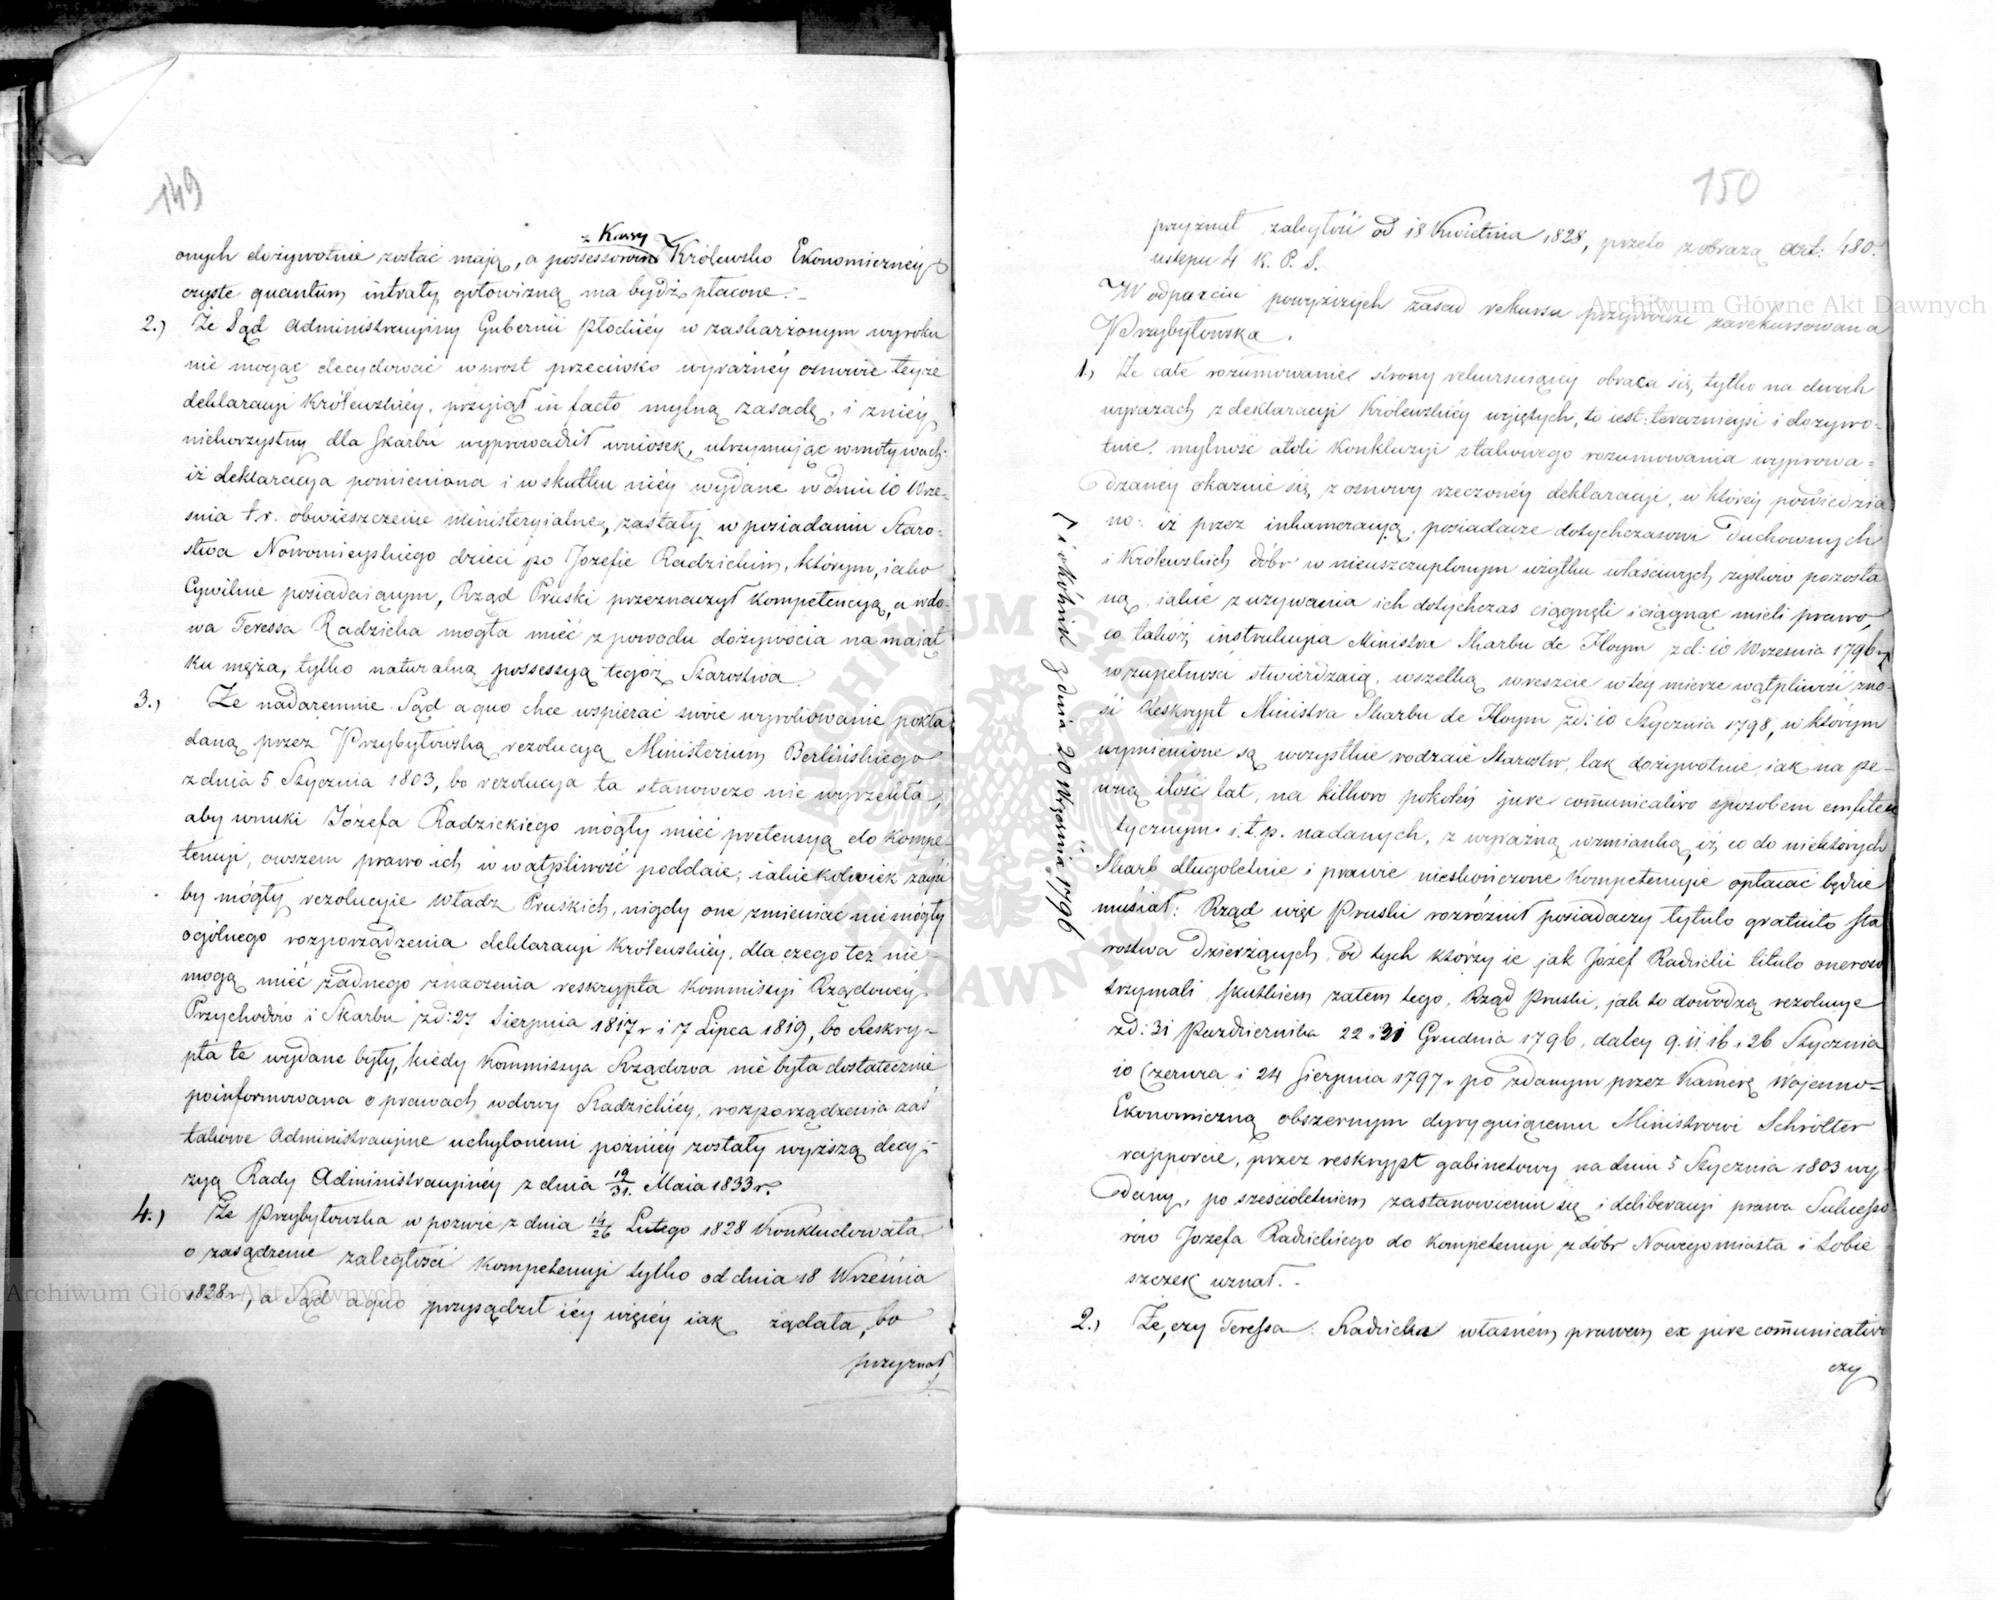 149
z Kassy
onych dożywotnie zostać mają, a possessorom Królewsko Ekonomicznéy
czyste quantum intraty gotowizną ma bydź płacone.
2.) Że Sąd Administracyiny Gubernii Płockiéy w zaskarżonym wyroku
nie mogąc decydować wprost przeciwko wyraźnéy osnowie teyże
deklaracyi Królewskiéy, przyiął in facto mylną zasadę, i z niéy
niekorzystny dla Skarbu wyprowadził wniosek, utrzymując w motywach:
iż deklaracya pomieniona i w skutku niéy wydane w dniu 10 Wrze-
śnia t. r. obwieszczenie ministeryialne, zastały w posiadaniu Staro-
stwa Nowomieyskiego dzieci po Jozefie Radzickim, którym, iako
Cywilnie posiadaiącym, Rząd Pruski przeznaczył kompetencyą, a wdo-
wa Teressa Radzicka mogła mieć z powodu dożywocia na maiąt
ku męża, tylko naturalną possessyą tegoż Starostwa
3.) Że nadaremnie Sąd a quo chce wspierać swóie wyrokowanie pokła
daną przez Przybyłowską rezolucyą Ministerium Berlińskiego
z dnia 5 Stycznia 1803, bo rezolucya ta stanowczo nie wyrzekła,
aby wnuki Józefa Radzickiego mógły mieć pretensyą do kompe-
tencyi, owszem prawo ich w wątpliwość poddaie; iakiekolwiek zaś
by mógły rezolucyie Władz Pruskich, nigdy one zmieniać nie mógły
ogólnego rozporządzenia deklaracyi Królewskiéy, dla czego też nie
mogą mieć żadnego znaczenia reskrypta Kommissyi Rządowéy
Przychodów i Skarbu z d: 27 Sierpnia 1817 r i 7 Lipca 1819, bo Reskry-
pta te wydane były, kiedy Kommissya Rządowa nie była dostatecznie
poinformowana o prawach wdowy Radzickiéy, rozporządzenia zaś
takowe Administracyine uchylonemi poźniéy zostały wyższą decy-
zyą Rady Administracyinéy z dnia 19/31. Maia 1833 r.
4.) Że Przybyłowska w pozwie z dnia 14/26 Lutego 1828 konkludowała
o zasądzenie zaległości kompetencyi tylko od dnia 18 Września
1828 r, a Sąd a quo przysądził iéy więcéy iak żądała, bo
przyznał
150
przyznał zaległość od 18 Kwietnia 1828, przeto z obrazą art: 480.
ustępu 4 K. P. S.
W odparciu powyższych zasad rekursu przywodzi zarekursowana
Przybyłowska.
1.) Że całe rozumowanie strony rekursuiącey obraca się, tylko na dwóch
wyrazach z deklaracyi Królewskiéy wyiętych, to iest: teraznieysi i dozywo-
tnie. mylność atoli konkluzyi z takowego rozumowania wyprowa-
dzanéy okazuie się, z osnowy rzeczonéy deklaracyi, w któréy powiedzia
no: iż przez inkameracyą, posiadacze dotychczasowi Duchownych
i Królewskich dóbr w nieuszczuplonym użytku właściwych zysków pozosta
ną, iakie z używania ich dotychczas ciągnęli i ciągnąć mieli prawo,
co także instrukcya Ministra Skarbu de Hoym z d: 10 Września 1796 r
w zupełności stwierdzaią, wszelką wreszcie w tey mierze wątpliwość zno-
si Reskrypt Ministra Skarbu de Hoym z d: 10 Stycznia 1798, w którym
wymienione są wszystkie rodzaie Starostw, tak dożywotnie, iak na pe-
wną ilość lat, na kilkoro pokoleń jure comunicativo sposobem emfiteu
tycznym i. t. p. nadanych, z wyraźną wzmianką, iż co do niektórych
Skarb długoletnie i prawie nieskończone kompetencyie opłacać będzie
musiał: Rząd więc Pruski rozróżnił posiadaczy tytulo gratuito Sta
rostwa dzierżących, od tych którzy ie jak Józef Radzicki titulo oneroso
trzymali, skutkiem zatem tego, Rząd Pruski, jak to dowodzą rezolucye
z d: 31 Października 22 i 31 Grudnia 1796, daley 9. 11. 16 i 26 Stycznia
10 Czerwca i 24 Sierpnia 1797 r po zdanym przez Kamerę Wojenno-
Ekonomiczną obszernym dyryguiącemu Ministrowi Schrötter
rapporcie, przez reskrypt gabinetowy na dniu 5 Stycznia 1803 wy
dany, po sześcioletniem zastanowieniu się i deliberacyi prawa Sukcesso-
rów Jozefa Radzickiego do kompetencyi z dóbr Nowegomiasta i Sobie
szczek uznał.
2.) Że, czy Teressa Radzicka własném prawem ex jure comunicativo
czy
i okólnik z dnia 20 Września 1796